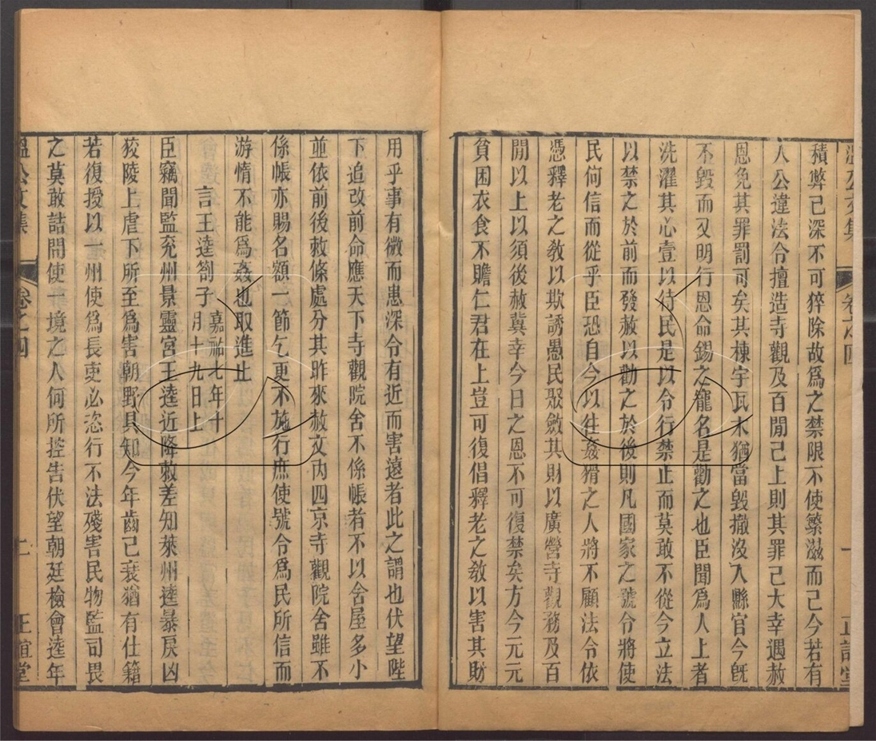 溫公文集 卷之四 一 正誼堂
積弊已深不可猝除故爲之禁限不使繁滋而已今若有
人公違法令擅造寺觀及百閒已上則其罪已大幸遇赦
恩免其罪罰可矣其棟宇瓦木猶當毀撤沒入縣官今旣
不毀而又明行恩命錫之寵名是勸之也臣聞爲人上者
洗濯其心壹以待民是以令行禁止而莫敢不從今立法
以禁之於前而發赦以勸之於後則凡國家之號令將使
民何信而從乎臣恐自今以往姦猾之人將不顧法令依
憑釋老之教以欺誘愚民聚斂其財以廣營寺觀務及百
閒以上以須後赦冀幸今日之恩不可復禁矣方今元元
貧困衣食不贍仁君在上豈可復倡釋老之教以害其財
用乎事有微而患深令有近而害遠者此之謂也伏望陛
下追改前命應天下寺觀院舍不係帳者不以舍屋多小
並依前後敕條處分其昨來赦文內四京寺觀院舍雖不
係帳亦賜名額一節乞更不施行庶使號令爲民所信而
游惰不能爲姦也取進止
言王逵劄子 嘉祐七年十
月十九日上
臣竊聞監兗州景靈宮王逵近降敕差知萊州逵暴戾凶
狡陵上虐下所至爲害朝野具知今年齒已衰猶有仕籍
若復授以一州使爲長吏必恣行不法殘害民物監司畏
之莫敢詰問使一境之人何所控告伏望朝廷檢會逵年
溫公文集 卷之四 二 正誼堂